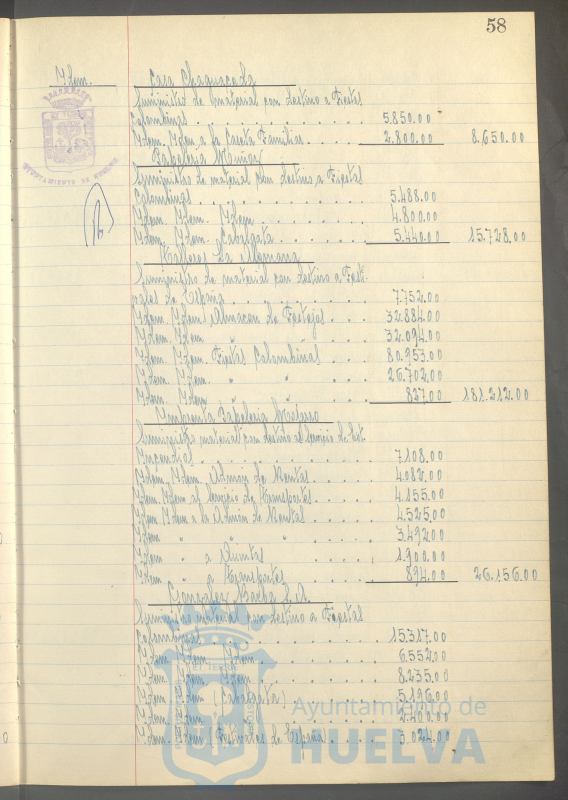 58
Idem. Casa Chaguaceda
Suministro de material con destino a Fiestas
Colombinas . . . . . . . . . . 5.850.00
Idem. Idem a la Caseta Familiar . . . . . 2.800.00 8.650.00
Papelería Muñoz
Suministro de material con destino a Fiestas
Colombinas . . . . . . . . . . 5.488.00
Idem. Idem. Idem . . . . . . . 4.800.00
Idem. Idem. Cabalgata . . . . . . 5.440.00 15.728.00
Talleres La Alemana
Suministro de material con destino a Festi
vales de España . . . . . . . . 7.752.00
Idem. Idem. Almacen de Festejos . . . 32.884.00
Idem. Idem " " . . . 32.094.00
Idem. Idem. Fiestas Colombinas . . . . 80.953.00
Idem. Idem. " " . . . 26.702.00
Idem. Idem " " . . . 827.00 181.212.00
Imprenta Papelería
Suministro material con destino al Servicio de Ext.
Incendios . . . . . . . . . . 7.108.00
Idem. Idem. Admón de Rentas . . . . 4.082.00
Idem. Idem al Servicio de Transportes . . . . 4.155.00
Idem Idem a la Admón de Rentas . . . . 4.525.00
Idem " " " . . . . 3.492.00
Idem " a . . . . . 1.900.00
Idem " a Transportes . . . . 894.00 26.156.00
Gonzalez Barba S.A.
Suministro material con destino a Fiestas
Colombinas . . . . . . . . . . 15.317.00
Idem Idem. Idem . . . . . . . . 6.552.00
Idem Idem. Idem . . . . . . . . 8.235.00
Idem. Idem (Cabalgata) . . . . . . 5.196.00
Idem. Idem " . . . . . . 2.400.00
Idem. Idem Festivales de España . . . . . 3.024.00
AYUNTAMIENTO DE HUELVA
Ayuntamiento de
HUELVA